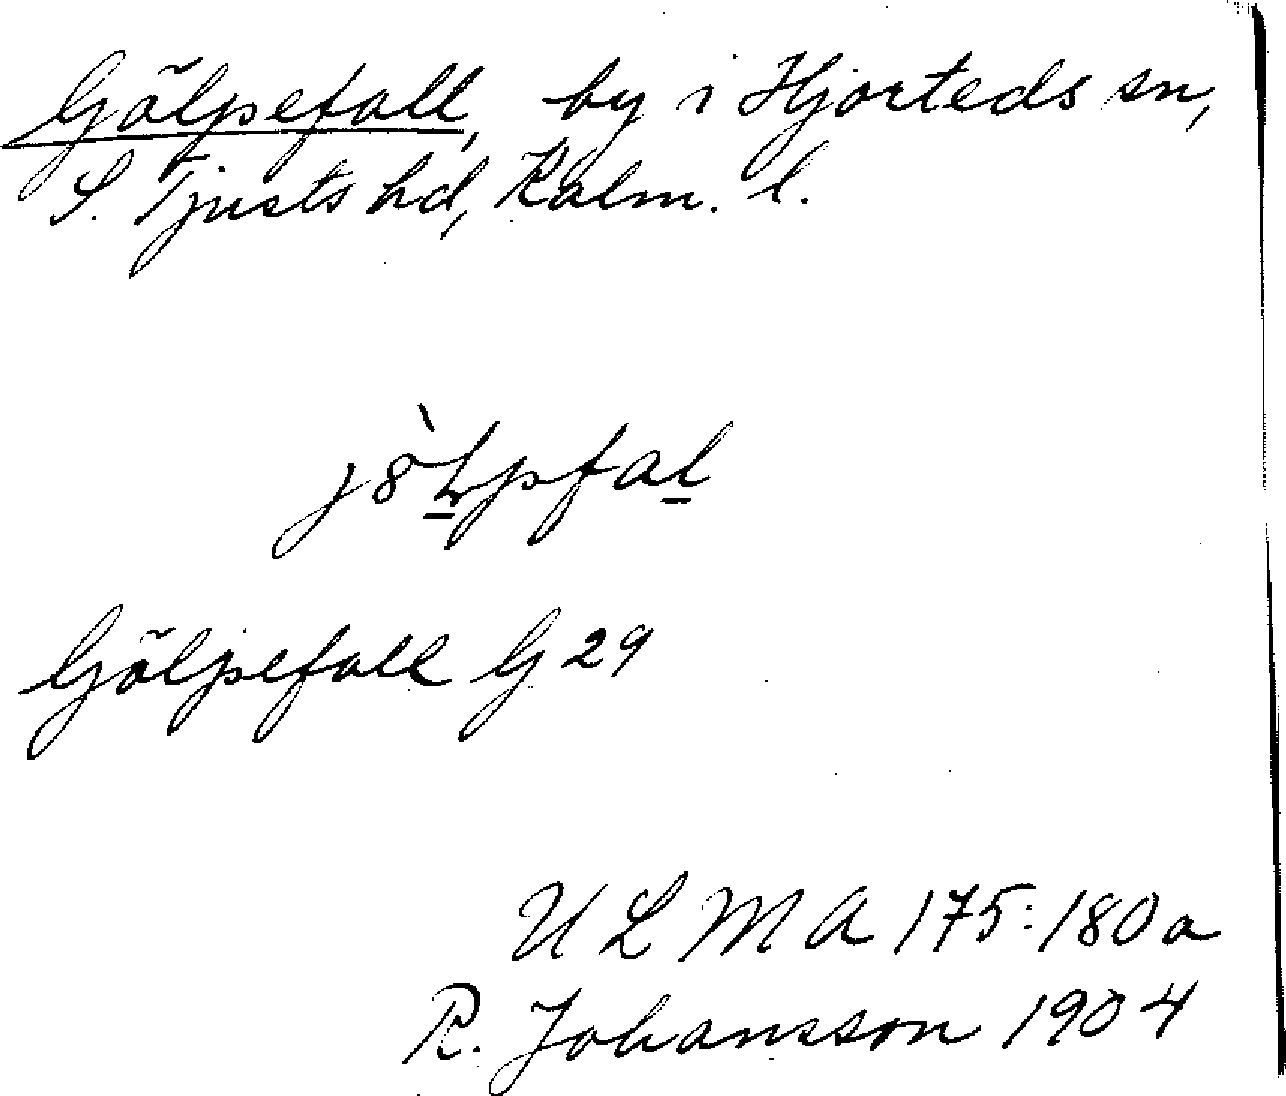 Gölpefall, by i Hjorteds sn,
S. Tjusts hd, Kalm. l.
Gölpefall G 29
U L M A 175:180 a
R. Johansson 1904